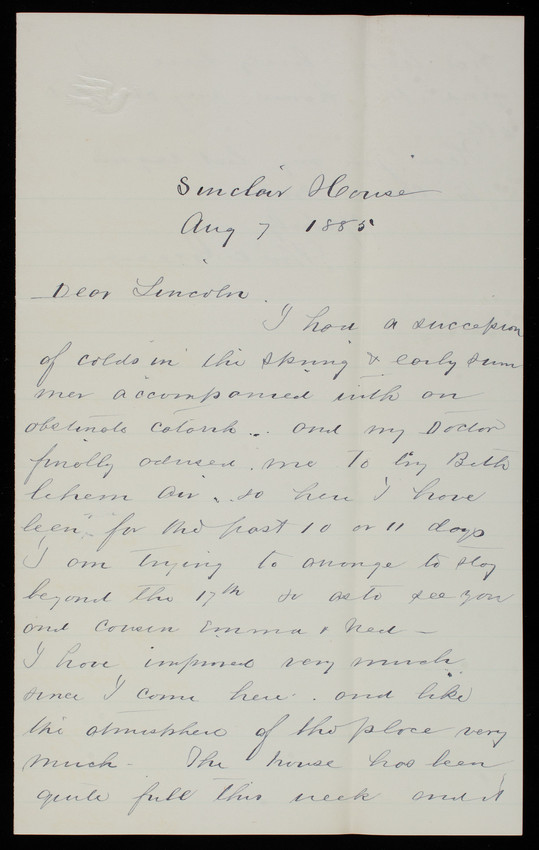 Sinclair House
Aug 7 1885
Dear Lincoln.
I had a succession
of colds in the spring & early sum
mer accompanied with an
obstinate catarrh.. and my Doctor
finally advised me to try Beth
lehem air. so here I have
been for the past 10 or 11 days
I am trying to arrange to stay
beyond the 17th so as to see you
and cousin Emma & Ned -
I have improved very much
since I came here. and like
the atmosphere of the place very
much - The house has been
quite full this week and it